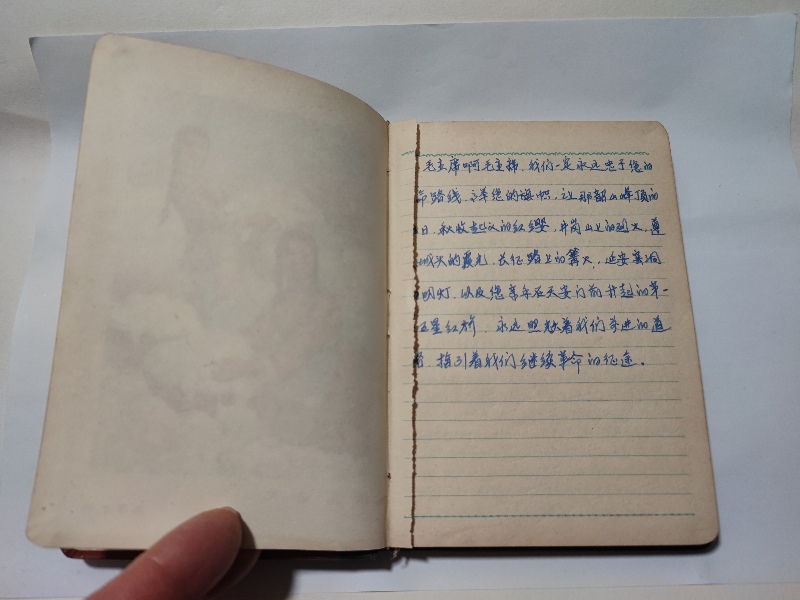 毛主席啊毛主席，我们一定永远忠于您的
命路线，高举您的旗帜，让那韶山峰顶的
日，秋收起义的红缨，井岗山上的烈火，遵
城头的霞光，长征路上的篝火，延安窑洞
明灯，以及您亲手在天安门前升起的第一
五星红旗，永远照耀着我们前进的道
，指引着我们继续革命的征途。